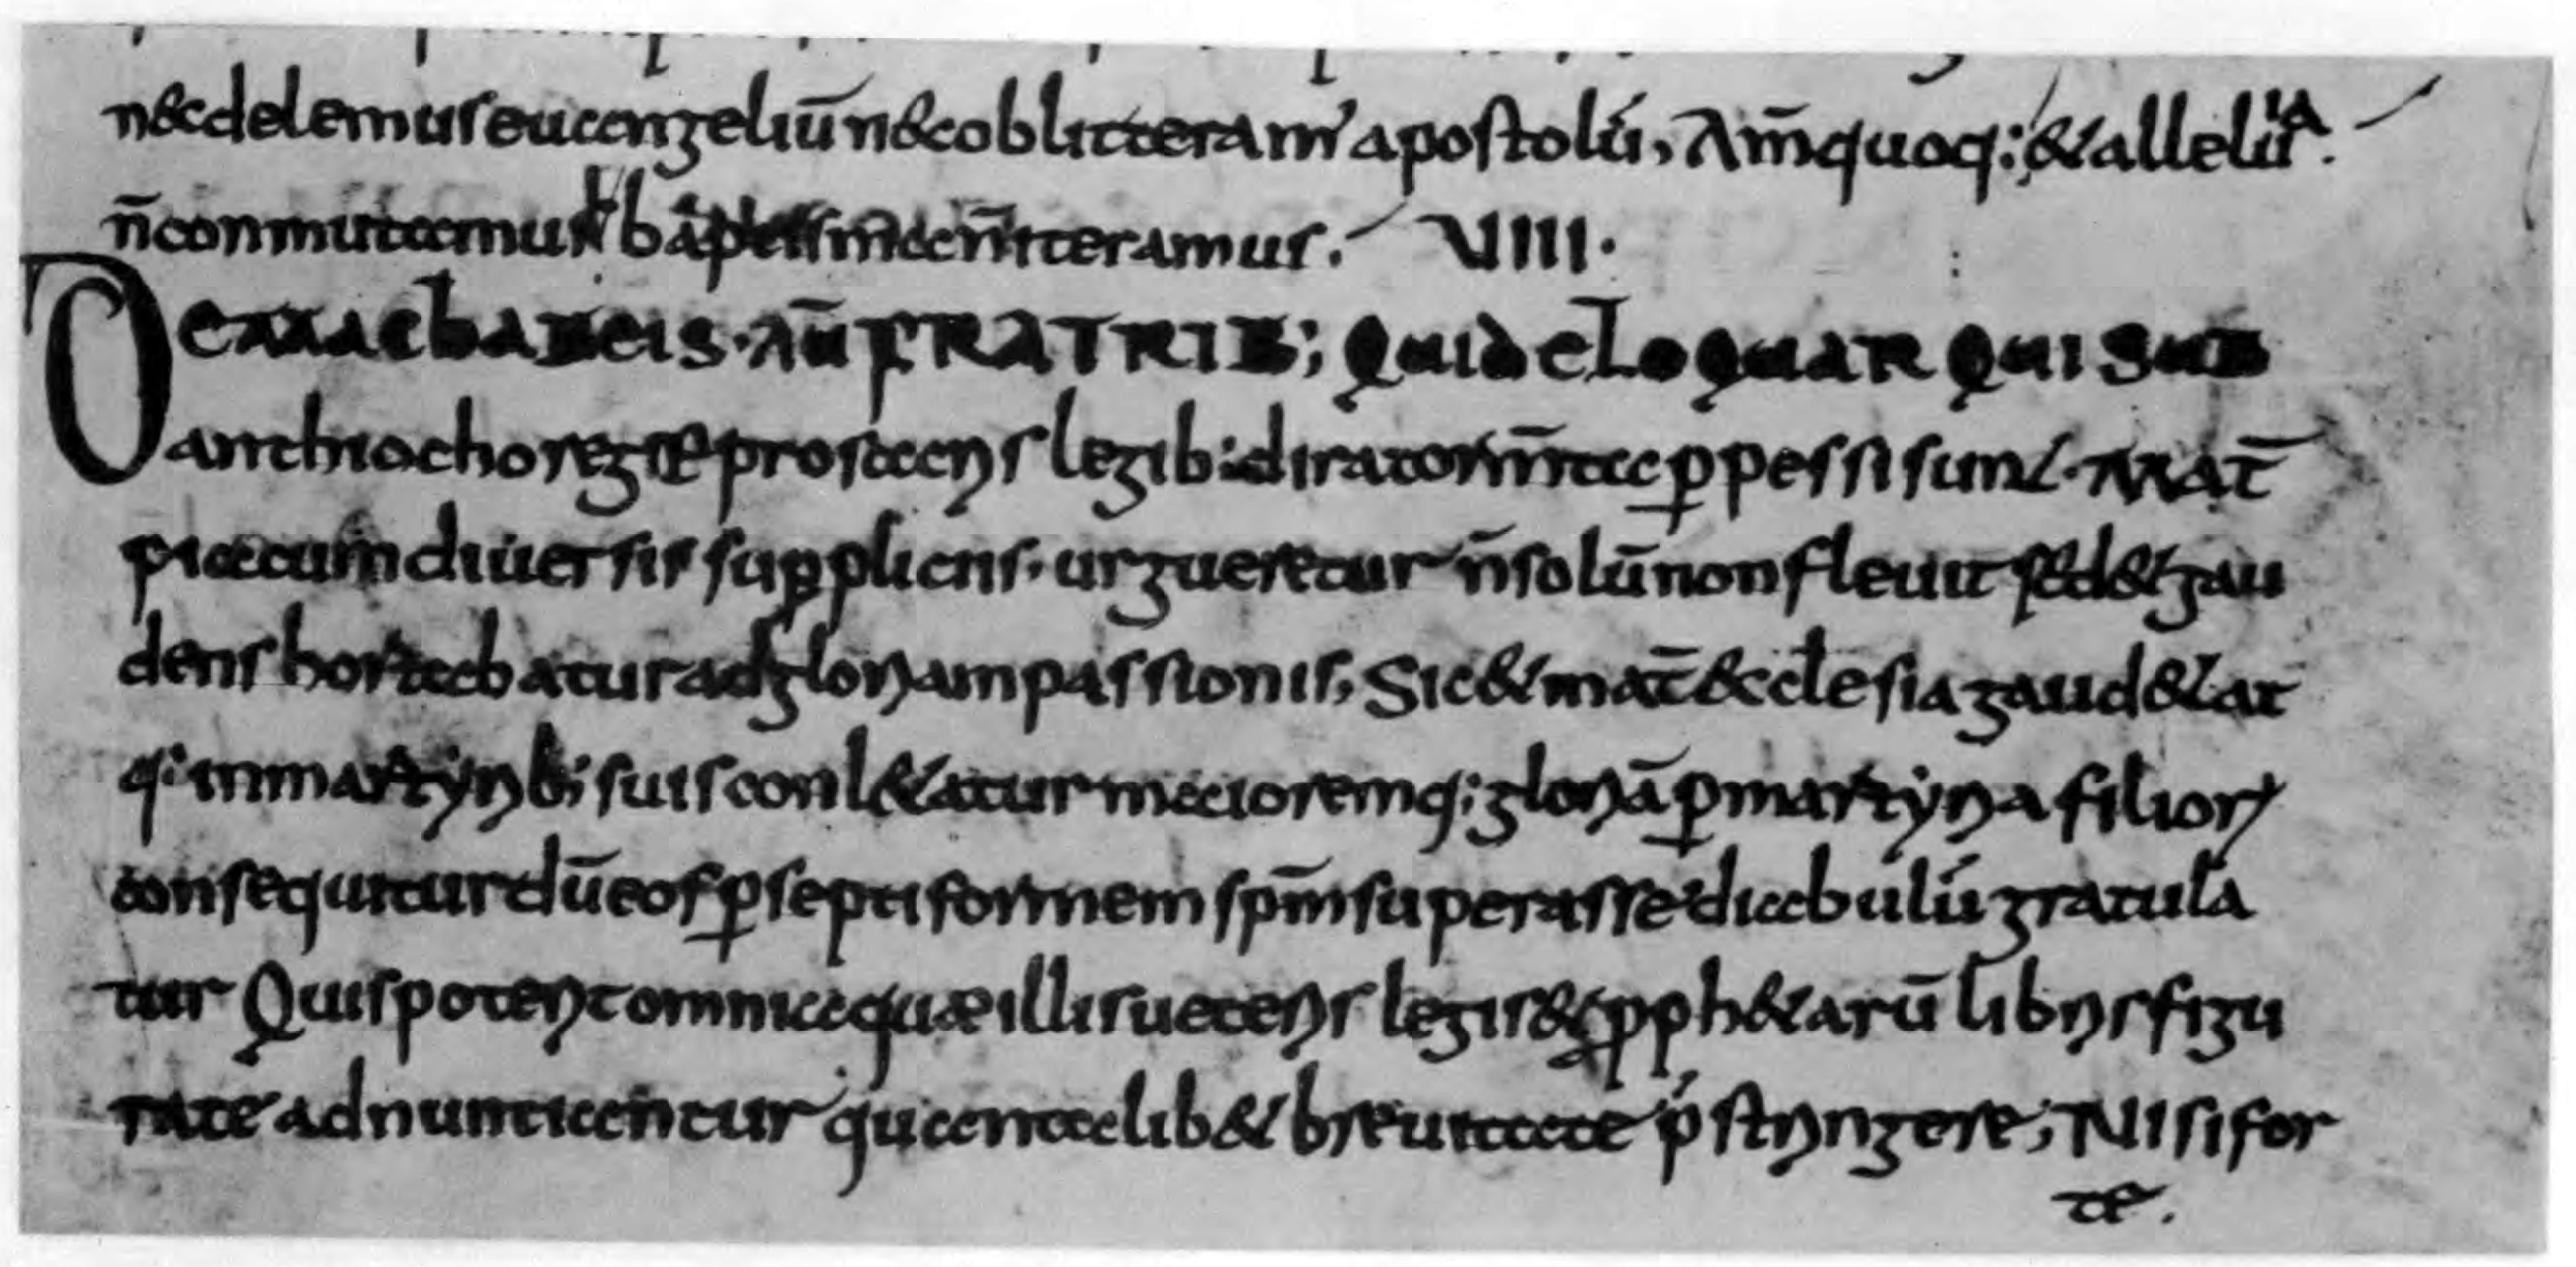 n&c delemus euangeliū n&c oblitteram' apostolū, Am̄ quoq; & alleluIA.
n̄ conmutamus baptisma n̄ iteramus. VIIII.
De machabeis. aū FRATRIB; quid eloquar qui sub
anthiocho rege pro sacris legib; dira tormta ꝑpessi sunt. Mat̄
pia cum diuersis suppliciis. urgueretur n̄ solū non fleuit sed & gau
dens hortabatur ad gloriam passionis, Sic & mat̄ &cclesia gaud& at
q; in martyrib; suis conl&atur maioremq; gloriā ꝑ martyria filioꝝ
consequitur dū eos ꝑ septiformem sp̄m superasse diabulū gratula
tur Quis poterit omnia quæ illis ueteris legis & ꝓph&arū libris figu
rate adnuntiantur quantalib& breuitate p' stringere; Nisi for
te.